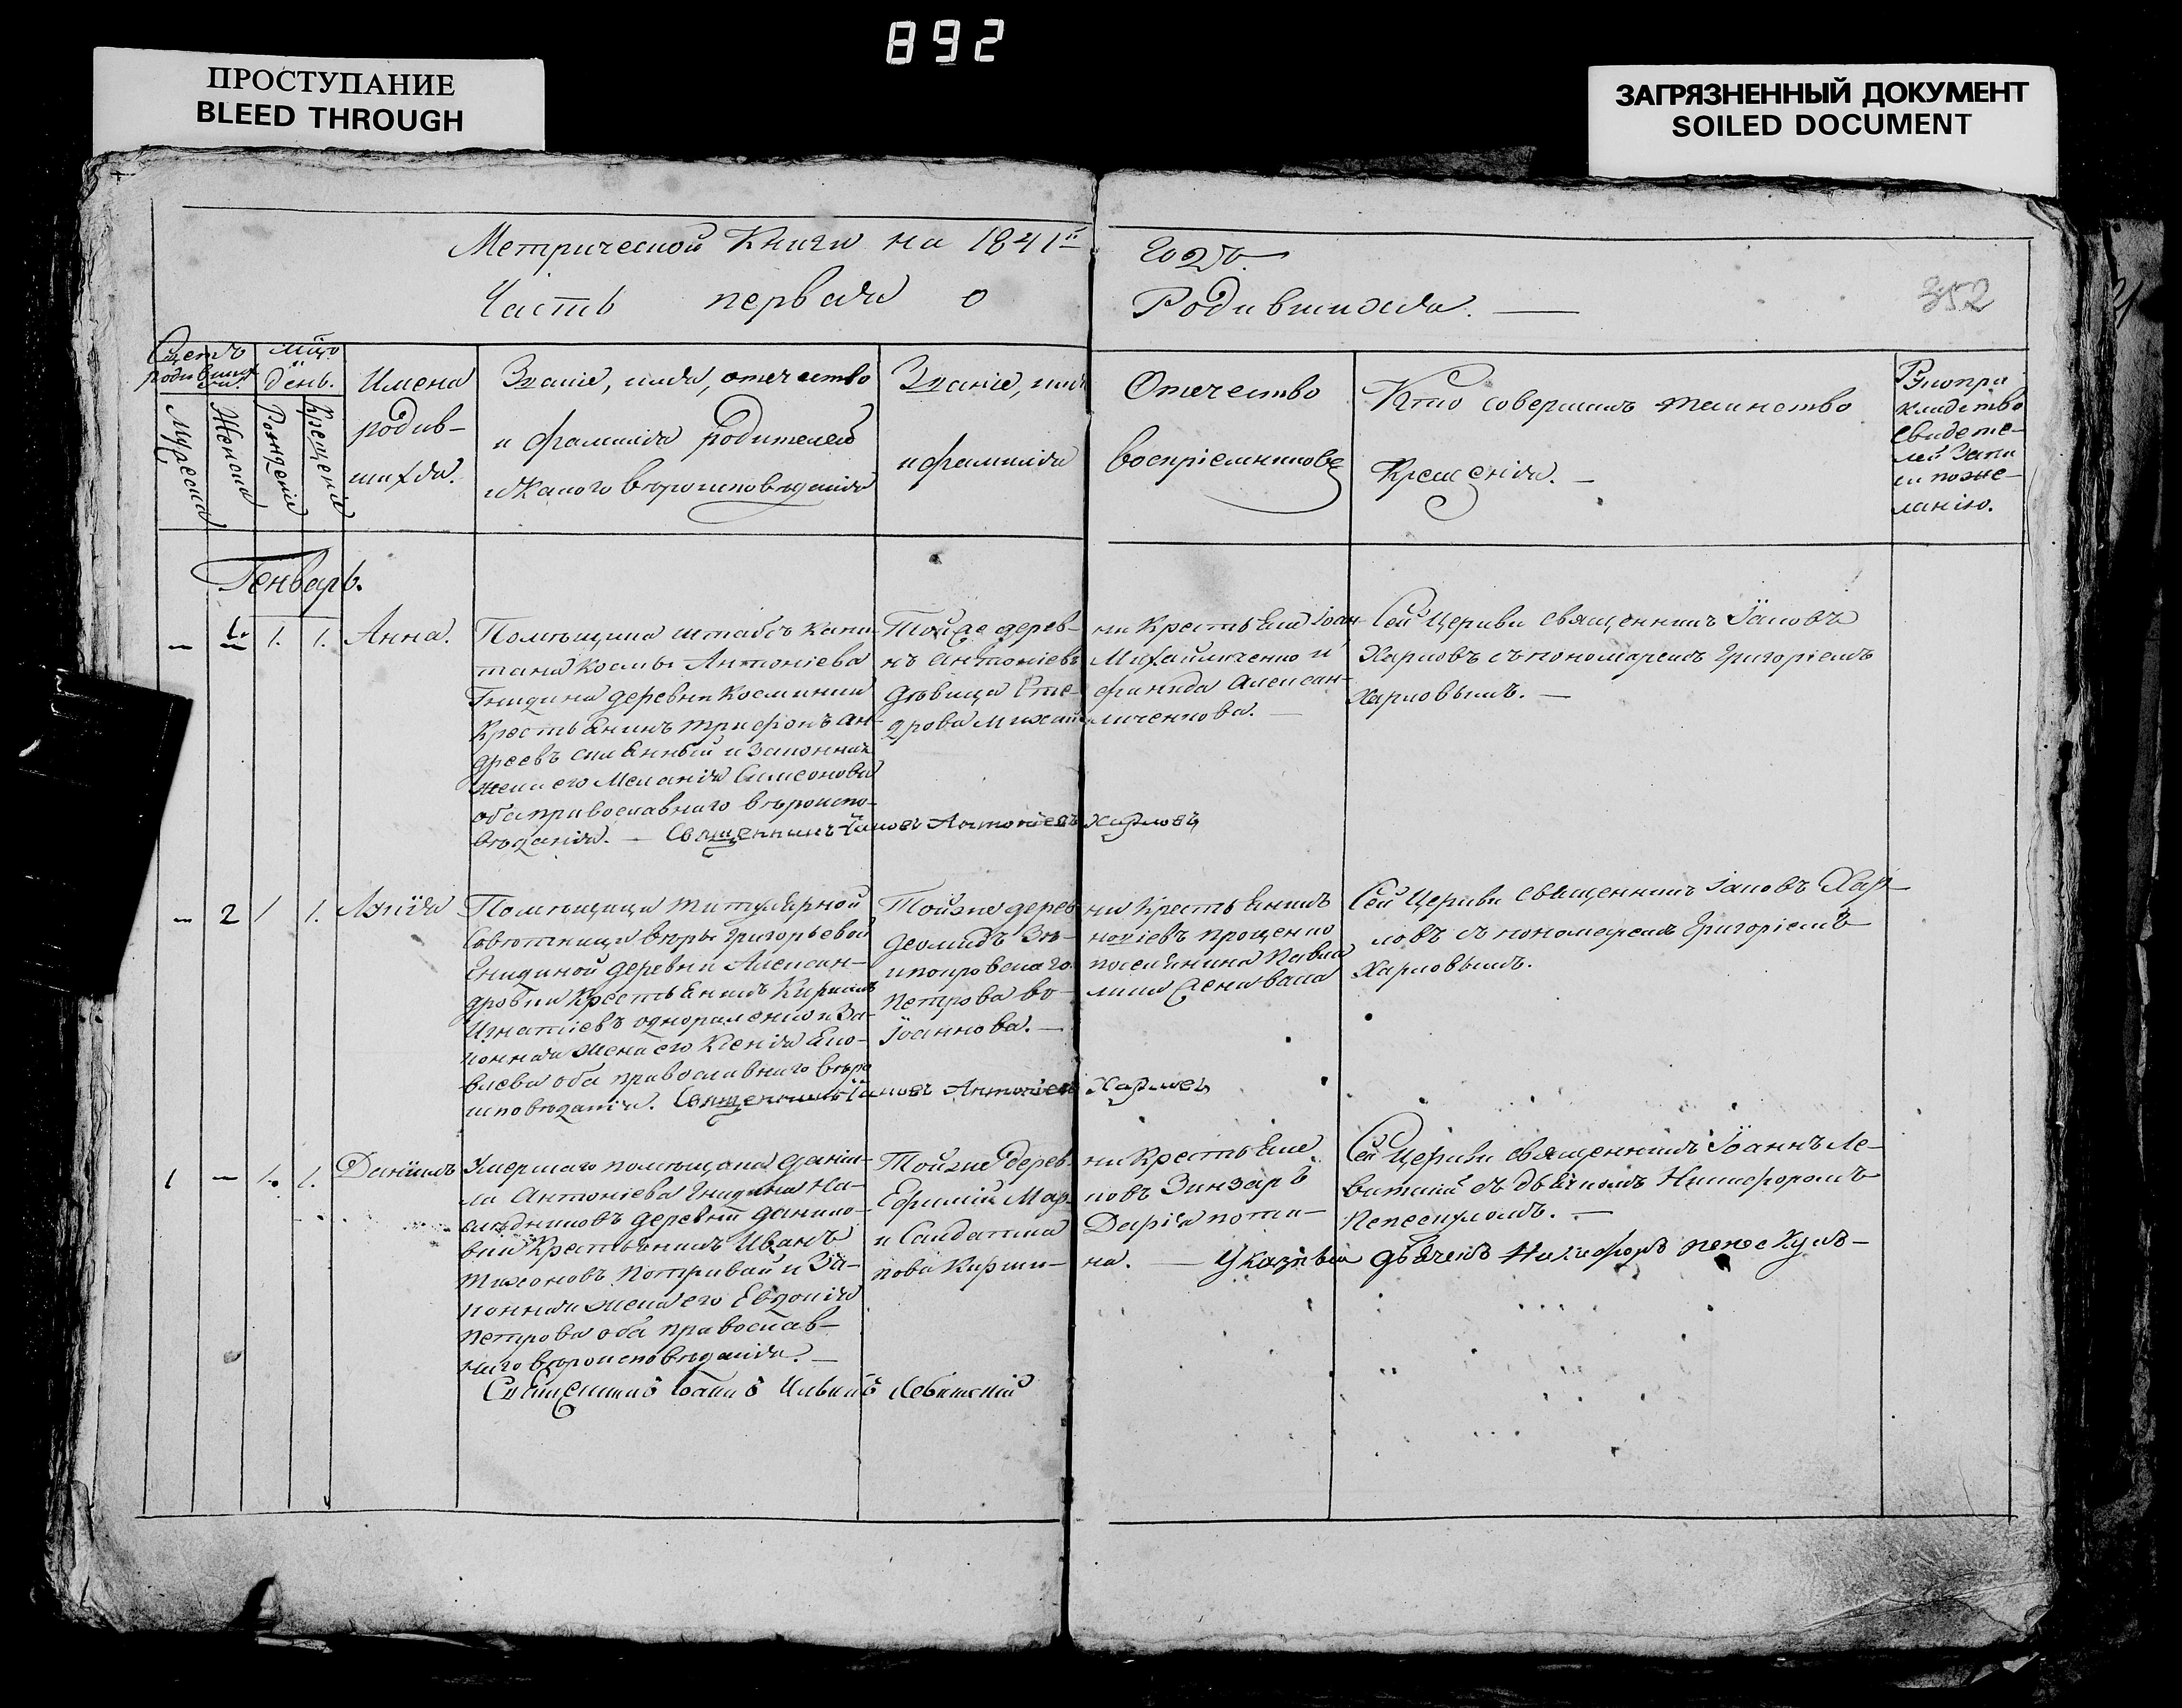 892
ПРОСТУПАНИЕ
BLEED THROUGH
ЗАГРЯЗНЕННЫЙ ДОКУМЕНТ
SOILED DOCUMENT
Метрической Книги на 1841й годъ.
Часть первая о Родившихся.
352
Счетъ родившихся.
Мужеска
Женска
Мцъ и день.
Рожденія
Крещенія
Имена
родив-
шихся.
Званіе, имя, отчество
и фамилія родителей
и какого вѣроисповѣданія
Званіе, имя
и фамилія
Отчество
воспріемниковъ
Кто совершалъ таинство
Крещенія.
Рукопри
кладство
свидете-
лей запи
си по же-
ланію.
Генварь.
— 1. 1. 1. Анна.
Помѣщика штабсъ капи-
тана Космы Антоніева
Гнидина деревни Косминки
Крестьянинъ Трифонъ Ан-
дреевъ и законная
жена его Меланія Симеонова
оба православнаго вѣроиспо-
вѣданія. — Священникъ Іаковъ Антоніевъ Харловъ
Тойже дерев-
нъ Антоніевъ
Дѣвица
дрова Михай
ни Крестьяне Іоан-
Михайличенко и
фанида Алексан-
личенкова. —
Сей Церкви священникъ Іаковъ
Харловъ съ пономаремъ Григоріемъ
Харловымъ. —
— 2 1 1.
Помѣщицы титулярной
Совѣтницы Вѣры Григорьевой
Гнидиной деревни Алексан-
дровки Крестьянинъ Кириллъ
Игнатіевъ и за-
конная жена его Ксенія Яко-
влева оба православнаго вѣро
исповѣданія. Священникъ Іаковъ Антоніевъ Харловъ
Тойже дерев
Деомидъ Зѣ-
Петрова во-
Іоаннова. —
ни Крестьянинъ
новіевъ Проценко
поселянина Павла
Сей Церкви священникъ Іаковъ Хар-
ловъ съ пономаремъ Григоріемъ
Харловымъ.
1 — 1. 1. Даніилъ
Умершаго помѣщика Даніи-
ла Антоніева Гнидина на-
слѣдниковъ деревни Данило-
вки Крестьянинъ Иванъ
Тихоновъ и за-
конная жена его Евдокія
Петрова оба православ-
наго вѣроисповѣданія. —
Священникъ Іоаннъ Левитскій
Тойже дерев-
Ефимій Мар-
и Салдатка
пова Кирши-
ни Крестьяне
ковъ Зинзаръ
Дарія
на. — Указный дьячекъ Никифоръ Пепескулъ —
Сей Церкви священникъ Іоаннъ Ле-
витскій съ дьячкомъ Никифоромъ
Пепескуломъ. —